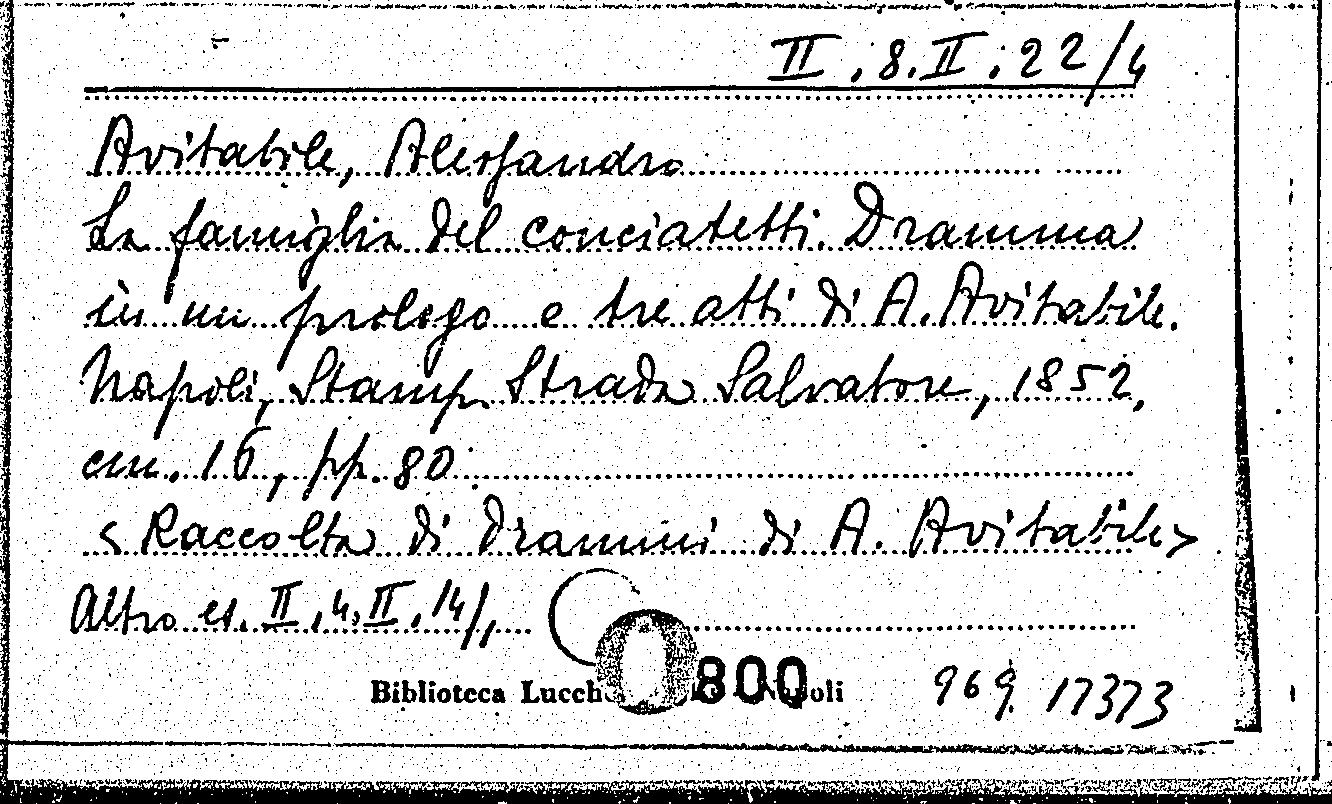 II.8.II.22/4
Avitabile, Alessandro
La famiglia del conciatetti. Dramma
in un prologo e tre atti di A. Avitabile.
Napoli, Stamp. Strada Salvatore, 1852,
cm. 16, pp. 80.
<Raccolta di Drammi di A. Avitabile>
Altro es. II.4.II.14/1
800
Biblioteca Napoli 969 17373